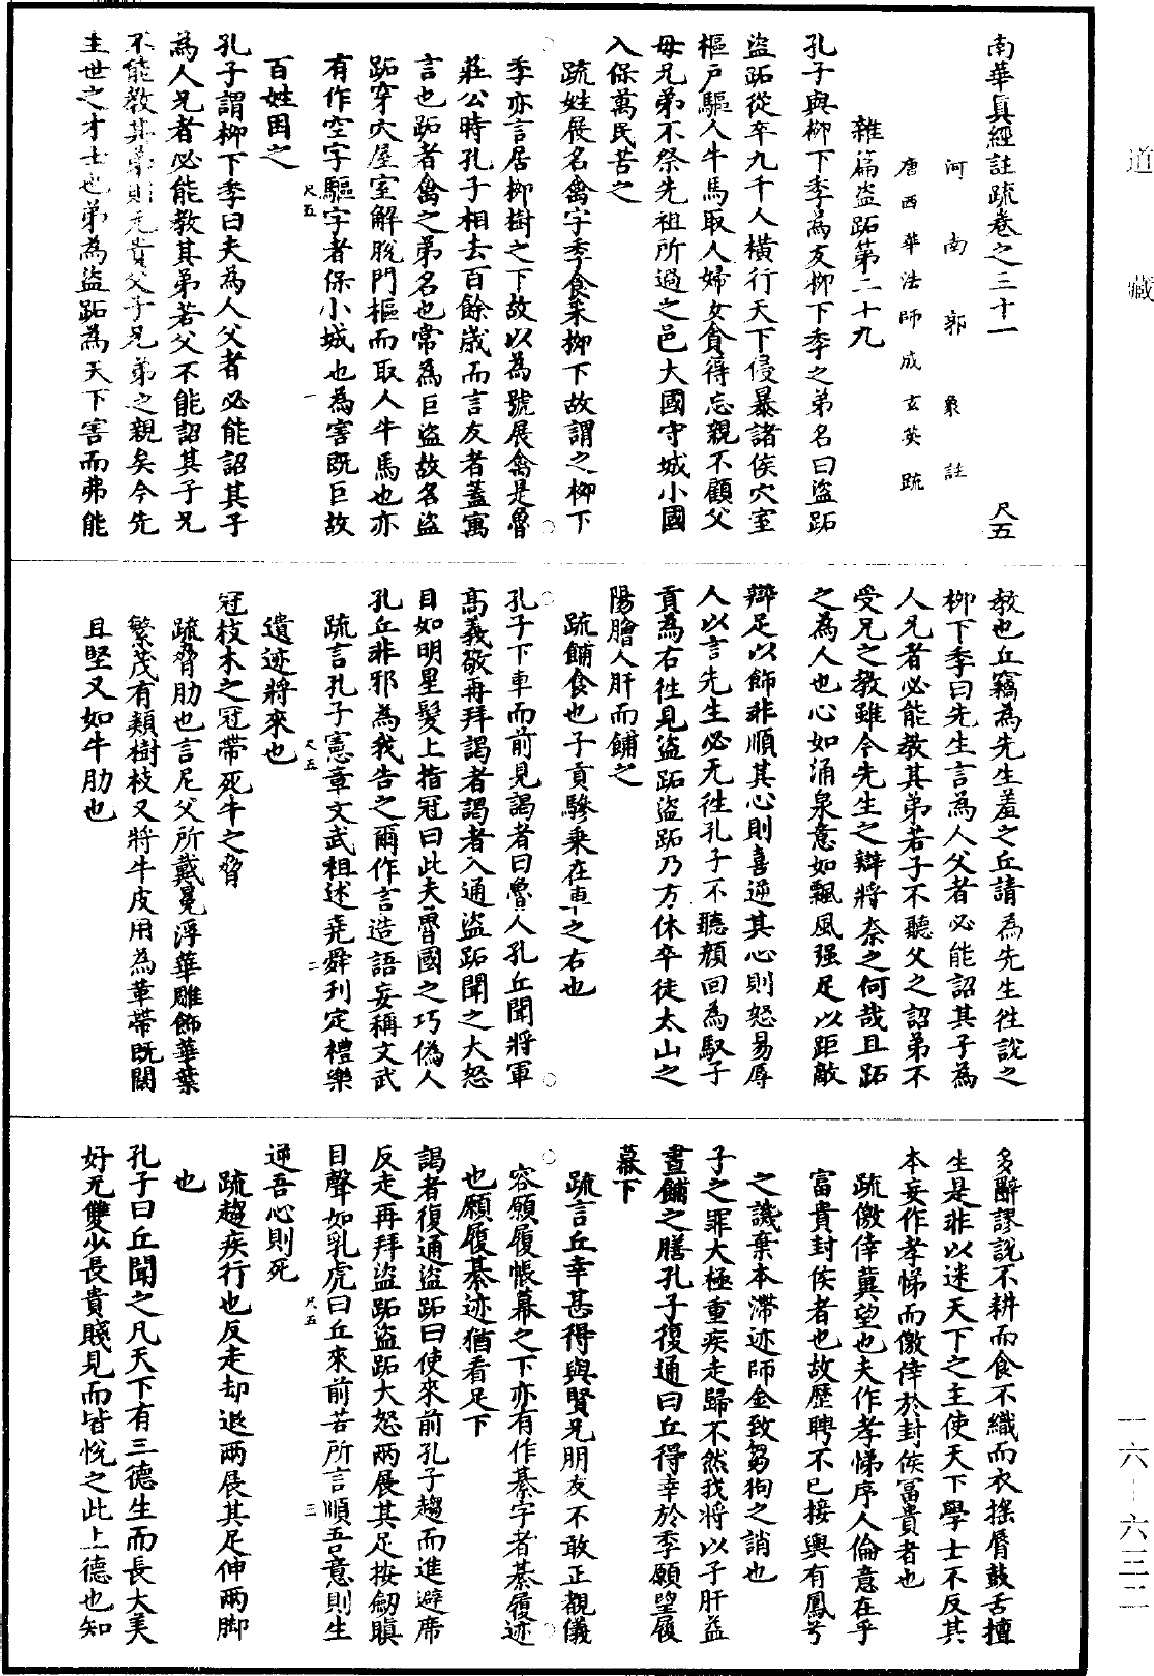 道藏
南華真經註疏卷之三十一 尺五
河南郭象註
唐西華法師成玄英疏
雜篇盜跖第二十九
孔子與柳下季為友柳下季之弟名曰盜跖
盜跖從卒九千人橫行天下侵暴諸侯穴室
樞戶驅人牛馬取人婦女貪得忘親不顧父
母兄弟不祭先祖所過之邑大國守城小國
入保萬民苦之
疏姓展名禽字季食菜柳下故謂之柳下
季亦言居柳樹之下故以為號展禽是魯
莊公時孔子相去百餘歲而言友者蓋寓
言也跖者禽之弟名也常為巨盜故名盜
跖穿穴屋室解脫門樞而取人牛馬也亦
有作空字驅字者保小城也為害既巨故
百姓困之
尺五 一
孔子謂柳下季曰夫為人父者必能詔其子
為人兄者必能教其弟若父不能詔其子兄
不能教其弟則无貴父子兄弟之親矣今先
生世之才士也弟為盜跖為天下害而弗能
教也丘竊為先生羞之丘請為先生往說之
柳下季曰先生言為人父者必能詔其子為
人兄者必能教其弟若子不聽父之詔弟不
受兄之教雖今先生之辯將奈之何哉且跖
之為人也心如涌泉意如飄風强足以距敵
辯足以飾非順其心則喜逆其心則怒易辱
人以言先生必无往孔子不聽顏回為馭子
貢為右往見盜跖盜跖乃方休卒徒太山之
陽膾人肝而餔之
疏餔食也子貢驂乘在車之右也
孔子下車而前見謁者曰魯人孔丘聞將軍
高義敬再拜謁者謁者入通盜跖聞之大怒
目如明星髮上指冠曰此夫魯國之巧偽人
孔丘非邪為我告之爾作言造語妄稱文武
疏言孔子憲章文武祖述堯舜刊定禮樂
遺迹將來也
尺五 二
冠枝木之冠帶死牛之脅
疏脅肋也言尼父所戴冕浮華雕飾華葉
繁茂有類樹枝又將牛皮用為革帶既闊
且堅又如牛肋也
多辭謬說不耕而食不織而衣搖脣鼓舌擅
生是非以迷天下之主使天下學士不反其
本妄作孝悌而儌倖於封侯富貴者也
疏儌倖冀望也夫作孝悌序人倫意在乎
富貴封侯者也故歷聘不已接輿有鳳兮
之譏棄本滯迹師金致芻狗之誚也
子之罪大極重疾走歸不然我將以子肝益
晝餔之膳孔子復通曰丘得幸於季願望履
幕下
疏言丘幸甚得與賢兄朋友不敢正覩儀
容願履帳幕之下亦有作綦字者綦履迹
也願履綦迹猶看足下
謁者復通盜跖曰使來前孔子趨而進避席
反走再拜盜跖盜跖大怒兩展其足按劒瞋
目聲如乳虎曰丘來前若所言順吾意則生
逆吾心則死
尺五 三
疏趨疾行也反走却退兩展其足伸兩脚
也
孔子曰丘聞之凡天下有三德生而長大美
好无雙少長貴賤見而皆悅之此上德也知
一六—六三二